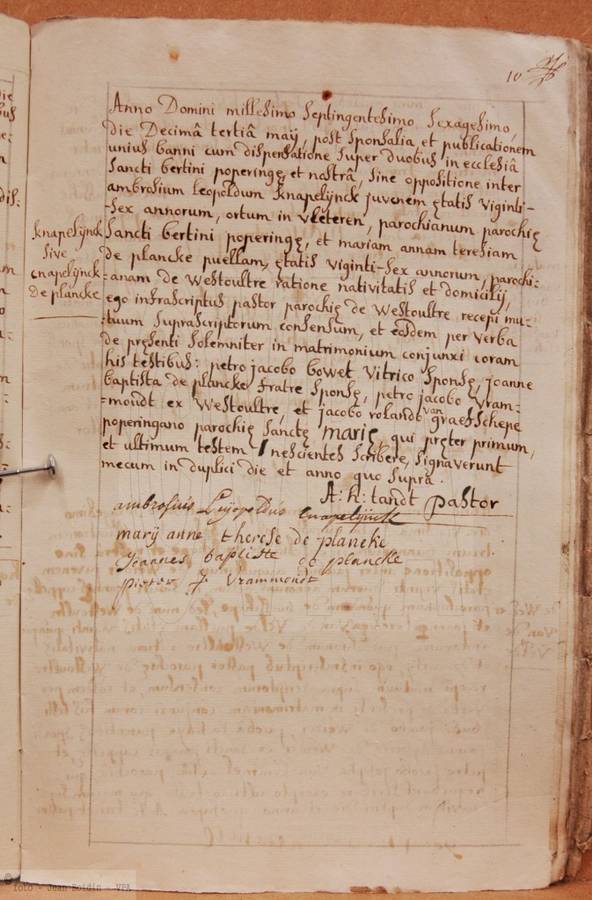 10
Anno Domini millesimo Septingentesimo Sexagesimo,
die Decimâ tertiâ maÿ, post Sponsalia et publicationem
unius banni cum dispensatione super duobus in ecclesiâ
Sancti bertini poperingę et nostrâ, sine oppositione inter
ambrosium leopoldum knapelÿnck juvenem ętatis viginti-
-sex annorum, ortum in vleteren, parochianum parochię
knapelÿnck
sive
cnapelÿnck
De plancke
Sancti bertini poperingę, et mariam annam teresiam
de plancke puellam, ętatis viginti-sex annorum, parochi:
:anam de Westoultre ratione nativitatis et domicilÿ,
ego infrascriptus pastor parochię de Westoultre recepi mu-
:tuum suprascriptorum consensum, et eosdem per verba
de pręsenti solemniter in matrimonium conjunxi coram
his testibus: petro jacobo bowet vitrico sponsę, joanne
baptista de plancke fratre sponsę, petro jacobo vram-
=mondt ex Westoultre, et jacobo rolandt van graefschepe
poperingano parochię sanctę marię, qui pręter primum,
et ultimum testem nescientes scribere, signaverunt
mecum in duplici die et anno quo supra.
A: h: tandt pastor
ambrosius Leÿopoldus cnapelÿnck
marÿ anne therese de plancke
Joannes baptiste de plancke
pieter J vrammondt
© foto - Jean Boidin - VPA